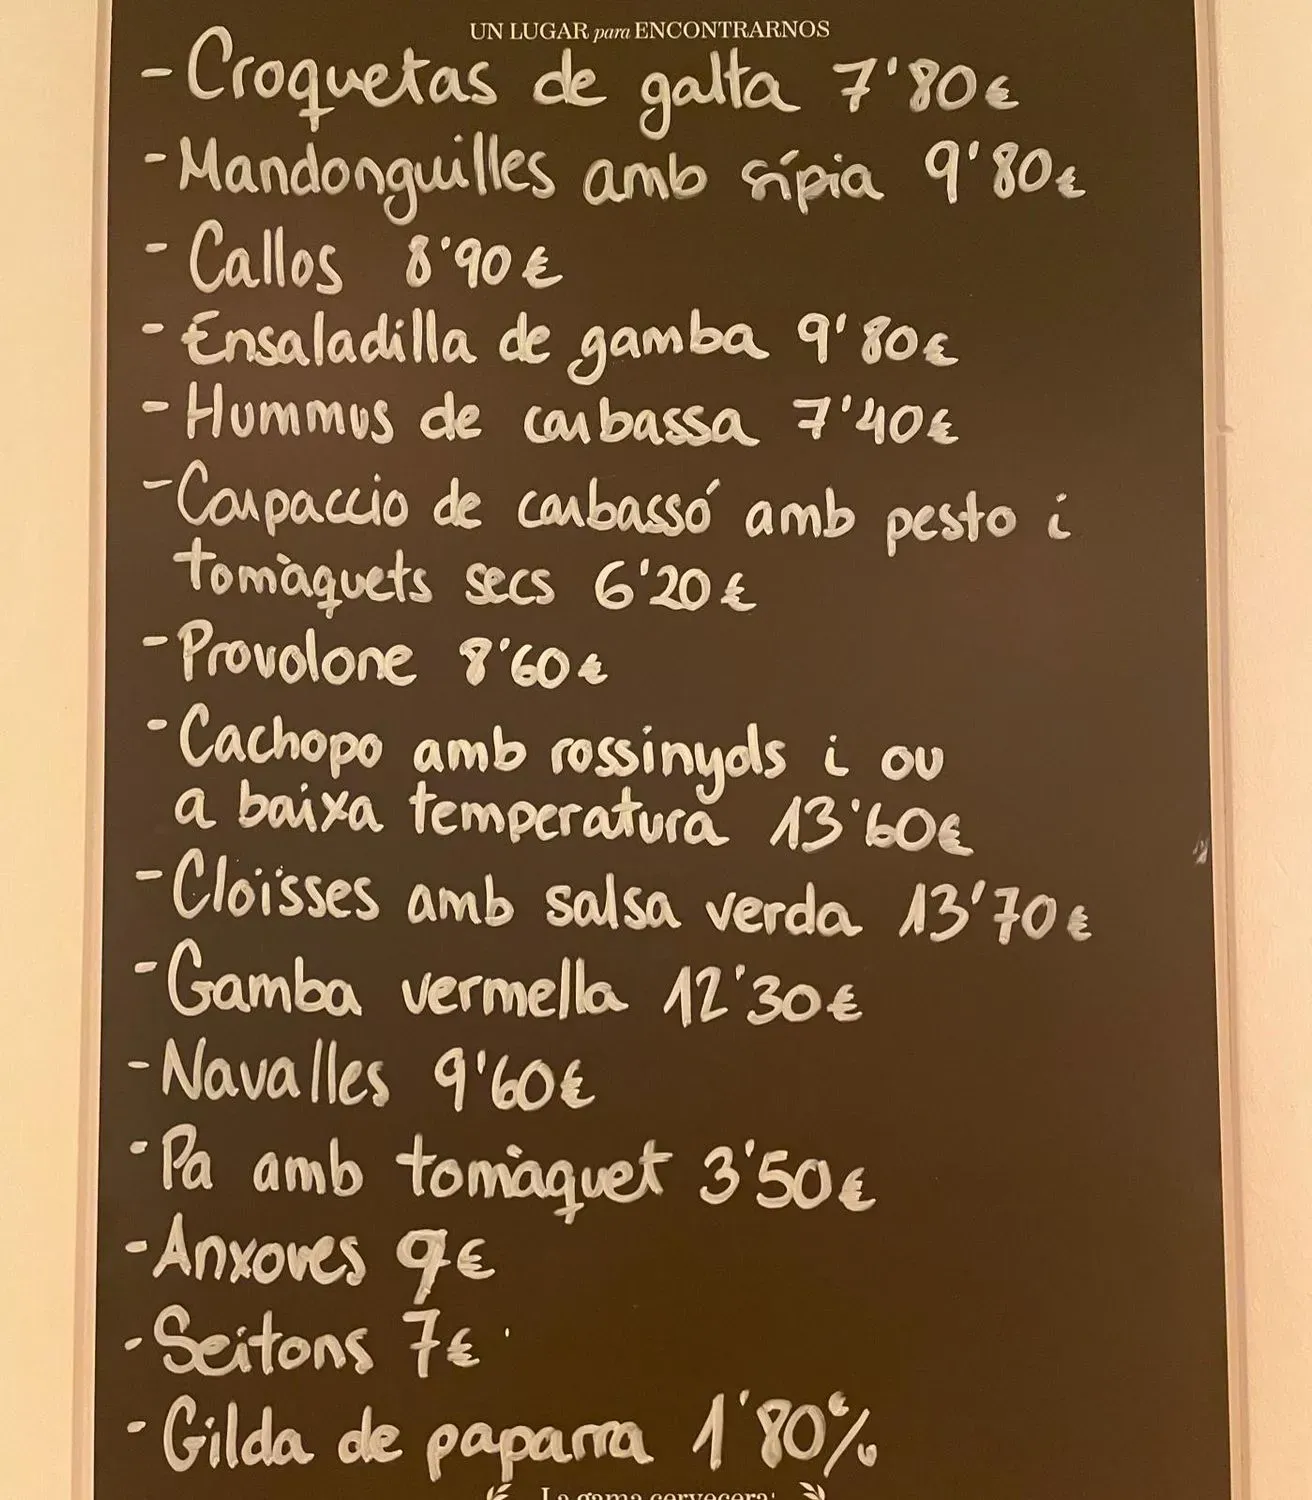 UN LUGAR para ENCONTRARNOS
- Croquetas de galta 7'80€
- Mandonguilles amb sípia 9'80€
- Callos 8'90€
- Ensaladilla de gamba 9'80€
- Hummus de carbassa 7'40€
- Carpaccio de carbassó amb pesto i
tomàquets secs 6'20€
- Provolone 8'60€
- Cachopo amb rossinyols i ou
a baixa temperatura 13'60€
- Cloïsses amb salsa verda 13'70€
- Gamba vermella 12'30€
- Navalles 9'60€
- Pa amb tomàquet 3'50€
- Anxoves 9€
- Seitons 7€
- Gilda de paparra 1'80€/u
La gama cervecera: